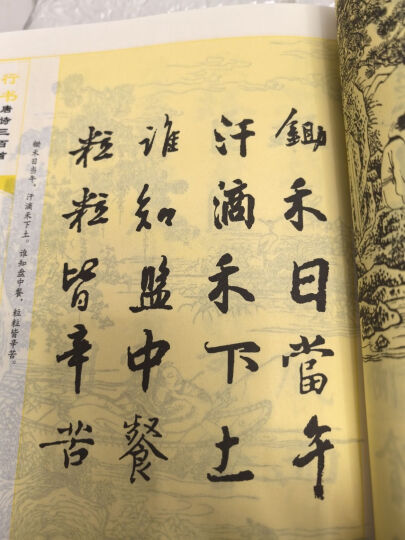 鋤禾日當午
汗滴禾下土
誰知盤中餐
粒粒皆辛苦
行书
唐诗三百首
锄禾日当午，汗滴禾下土。谁知盘中餐，粒粒皆辛苦。